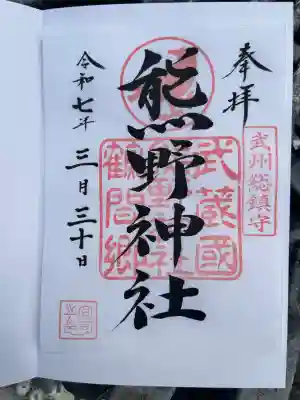 奉拝
武州総鎮守
熊野神社
武蔵國
鶴間郷
令和七年
三月三十日